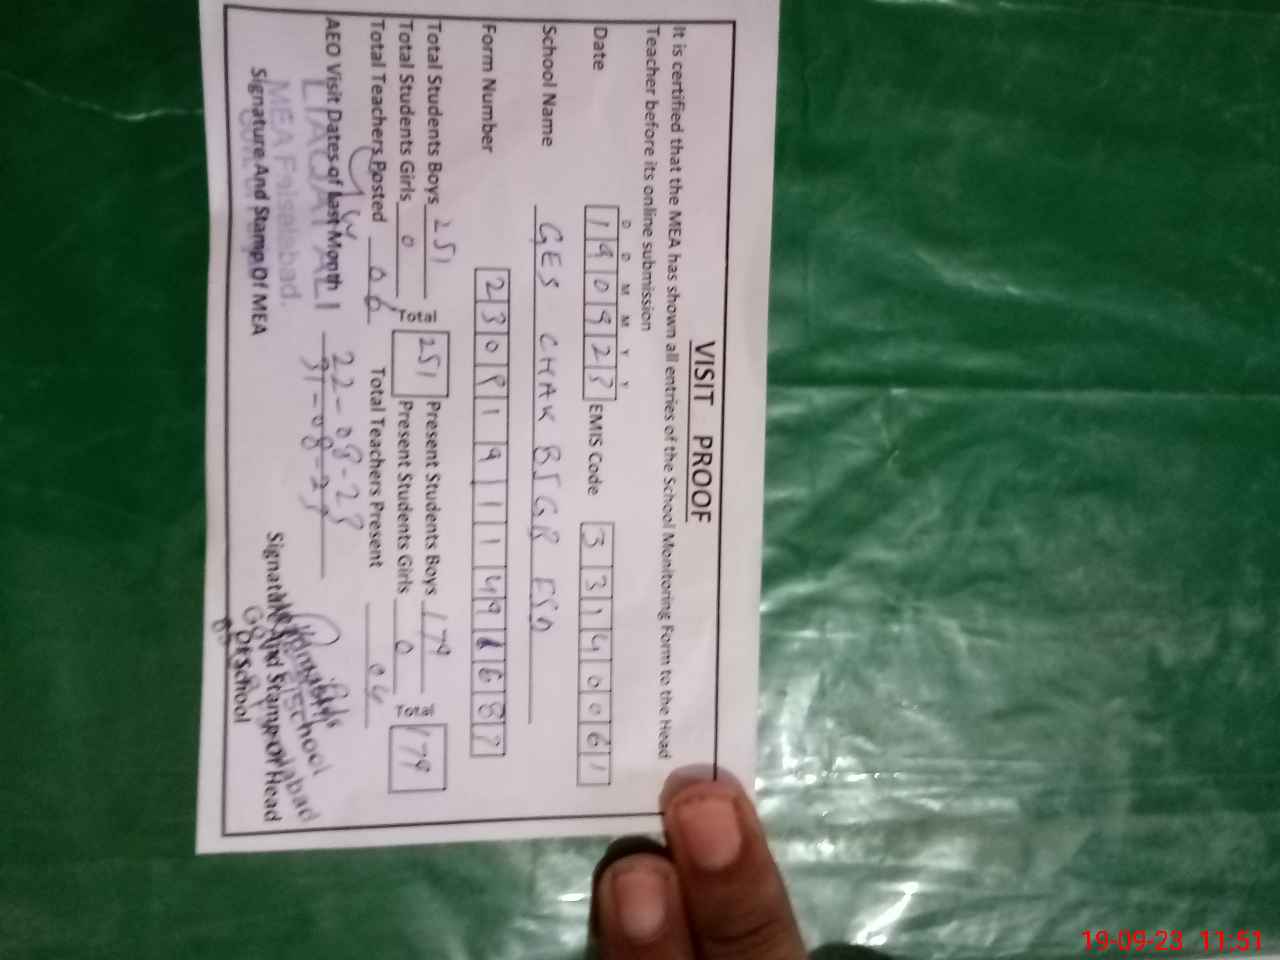 VISIT PROOF
It is certified that the MEA has shown all entries of the School Monitoring Form to the Head
Teacher before its online submission
D D M M Y Y
Date 190923 EMIS Code 33140061
School Name GES CHAK
Form Number
Total Students Boys 251 251 Present Students Boys 179 179
Total Students Girls 0 Present Students Girls 0
Total Teachers Posted 06 Total Teachers Present 04
AEO Visit Dates of Last Month 22-08-23
31-08-23
LIAQAT ALI
MEA Faisalabad.
Signature And Stamp Of MEA
Signature And Stamp Of Head
Of School
19-09-23 11:51